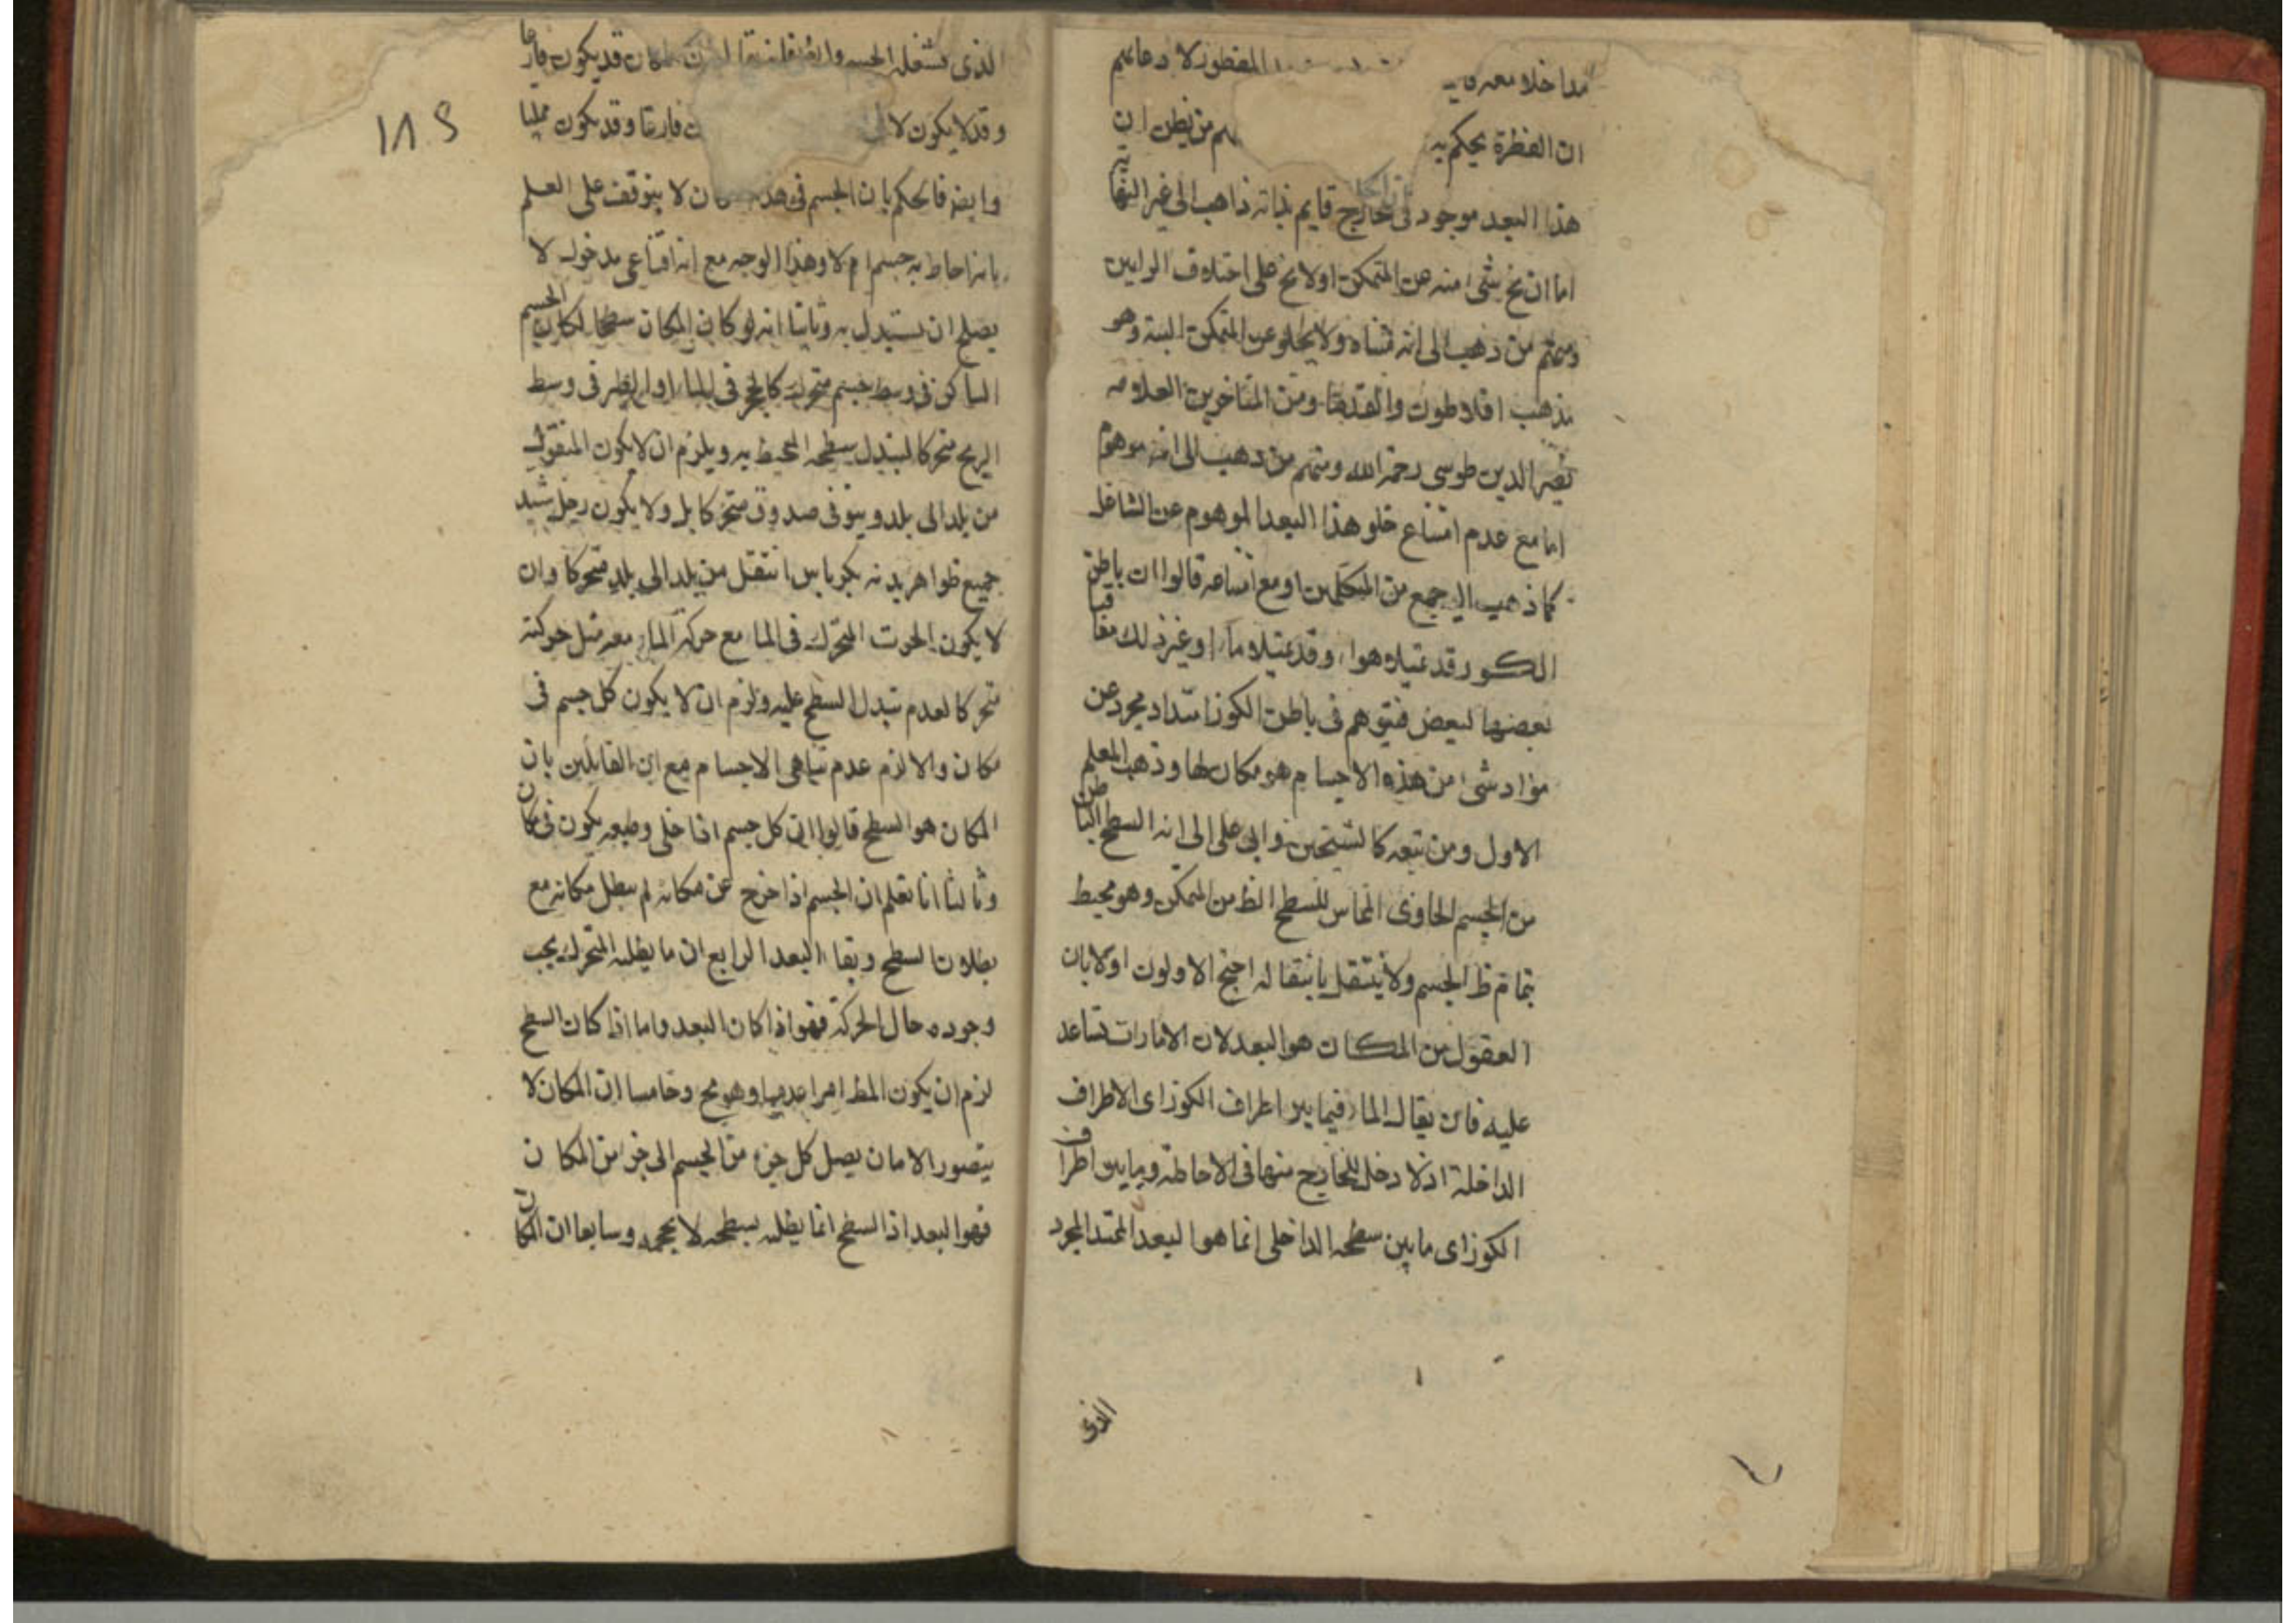 مداخلا معه المفطور لادعائهم
ان الفطرة يحكم به من يظن ان
هذا البعد موجود فى الخارج قايم بذاته ذاهب الى غير النهاية
اما ان يخ شئ منه عن المتمكن اولا يخ على اختلاف الرايين
ومنهم من ذهب الى انه متناه ولا يخلو عن المتمكن البتة وهو
مذهب افلاطون والقدماء ومن المتاخرين العلامه
نصير الدين طوسى رحمة الله ومنهم من ذهب الى انه موهوم
اما مع عدم امتناع خلو هذا البعد الموهوم عن الشاغل
كما ذهب اليه جمع من المتكلمين او مع امتناعه قالوا ان باطن
الكوز قد يمتلاه هواء وقد يمتلاه ماء او غير ذلك متعاقبا
بعضها لبعض فيتوهم فى باطن الكوز امتداد مجرد عن
مواد شئ من هذه الاجسام هو مكان لها وذهب المعلم
الاول ومن تبعه كالشيخين وابى على الى انه السطح الباطن
من الجسم الحاوى المماس للسطح الظ من المتمكن وهو محيط
بتمام ظ الجسم ولا ينتقل بانتقاله احتج الاولون اولا بان
العقول من المكان هو البعد لان الامارات تساعد
عليه فان يقال الماء فيما بين اطراف الكوز اى الاطراف
الداخلة اذ لا دخل للخارج منها فى الاحاطة وما بين اطراف
الكوز اى ما بين سطحه الداخلى انما هو البعد الممتد المجرد
الذى
الذى يشغله الجسم وايضا المكان قد يكون فارغا
وقد لا يكون فارغا وقد يكون ممليا
وايضه فالحكم بان الجسم فى هذه لا يتوقف على العلم
بانه احاط به جسم ام لا وهذا الوجه مع انه اقناعى مدخول لا
يصلح ان يستدل به وثانيا انه لو كان المكان سطحا لكان الجسم
الساكن فى وسط جسم متحرك كالحجر فى الماء او الطير فى وسط
الريح متحركا لتبدل سطحه المحيط به ويلزم ان لا يكون المنقول
من بلد الى بلد وهو فى صدوق متحركا بل ولا يكون رجل شيد
جميع ظواهر بدنه بكرباس انتقل من بلد الى بلد متحركا وان
لا يكون الحوت المتحرك فى الما مع حركة الماء معه مثل حركته
متحركا لعدم تبدل السطح عليه ولزم ان لا يكون كل جسم فى
مكان والا لزم عدم تناهى الاجسام مع ان القائلين بان
المكان هو السطح قالوا ان كل جسم اذا خلى وطبعه يكون فى مكان
وثالثا انا نعلم ان الجسم اذا خرج عن مكانه لم يبطل مكانه مع
بطلان السطح وبقاء البعد الرابع ان ما يطلبه المتحرك يجب
وجوده حال الحركة فهو اذا كان البعد واما اذا كان السطح
لزم ان يكون المط امرا عدميا وهو مح وخامسا ان المكان لا
يتصور الا مان يصل كل جزء من الجسم الى جزء من المكان
فهو البعد اذ السطح انما يطلبه بسطحه لا بحجمه وسابعا ان المكان